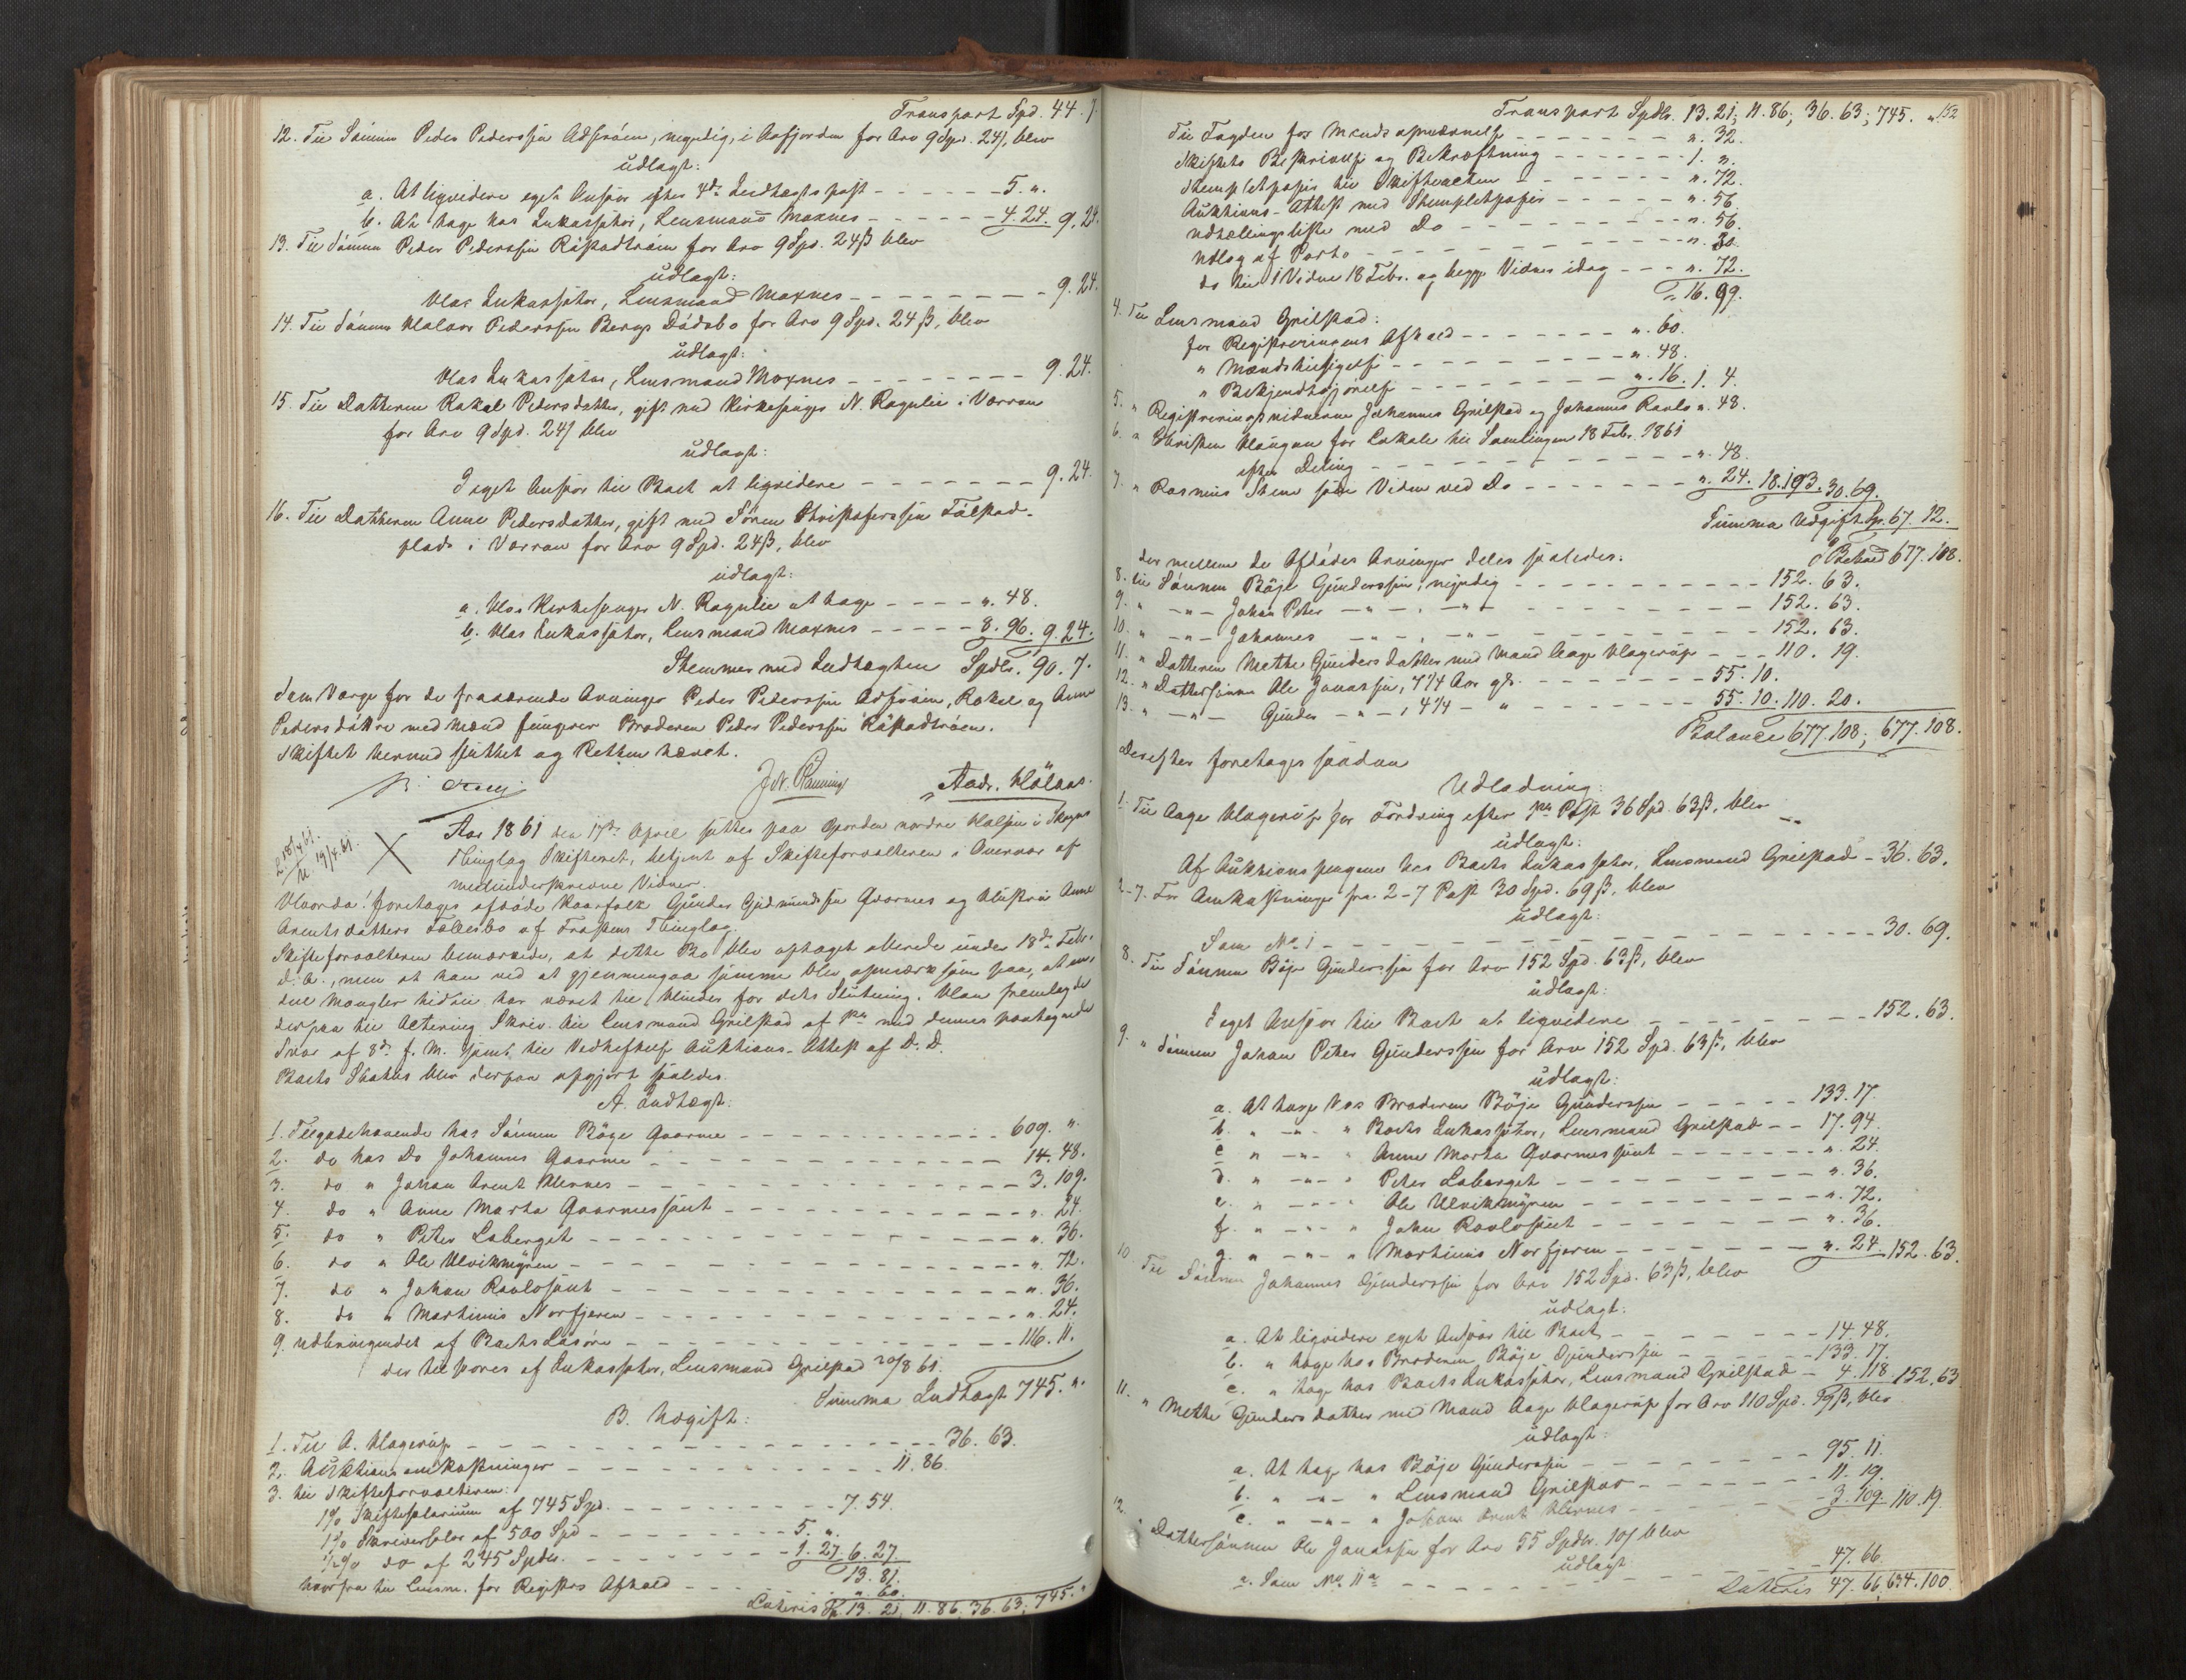 Transport Spd. 44. 7.
12. Til Sönnen Peder Pederssön Adsröien, myndig, i Aafjorden for Arv 9 Spd. 24 β, blev
udlagt:
a. At liqvidere eget Ansvar efter 4de Indtægtspost - - - - - - 5. "
b. At tage hos Inkassator, Lensmand Moxnes - - - - - - 4. 24. 9. 24.
13. Til Sönnen Peder Pederssön Råstadtröen for Arv 9 Spd. 24 β blev
udlagt:
Hos Inkassator, Lensmand Moxnes - - - - - - - - 9. 24.
14. Til Sönnen Halvor Pederssön Bergs Dödsbo for Arv 9 Spd. 24 β, blev
udlagt:
Hos Inkassator, Lensmand Moxnes - - - - - - - - 9. 24.
15. Til Datteren Rakel Pedersdatter, gift med Kirkesanger N. Ragnlie i Værran
for Arv 9 Spd. 24 β blev
udlagt:
I eget Ansvar til Boet at liqvidere - - - - - - - 9. 24.
16. Til Datteren Anne Pedersdatter, gift med Sören Christoferssön Fålstad-
plads i Værran for Arv 9 Spd. 24 β, blev
udlagt:
a. Hos Kirkesanger N. Ragnlie at tage - - - - ". 48.
b. Hos Inkassator, Lensmand Moxnes - - - - - 8. 96. 9. 24.
Stemmer med Indtægten Spdlr. 90. 7.
Som Værge for de fraværende Arvinger Peder Pederssön Adsröien, Rakel og Anne
Pedersdöttre med Mænd fungerer Broderen Peder Pederssön Råstadtröen.
Skiftet hermed sluttet og Retten hævet.
Andr. Hölaas
Aar 1861 den 17de April sattes paa Gaarden nordre Halsen i Skogns
Thinglag Skifteret, betjent af Skifteforvalteren i Overvær af
medunderskrevne Vidner.
Hvorda: foretoges afdöde Kaarfolk Gunder Gudmundssön Qvarmes og Hustru Anne
Arentsdatters Fællesbo af Frostens Thinglag.
Skifteforvalteren bemærkede, at dette Bo blev optaget allerede under 18de Febr.
d. A., men at han ved at gjennemgaa samme blev opmærksom paa, at en-
del Mangler hidtil har været til Hinder for dets Slutning. Han fremlagde
derpaa til Actering Skriv. til Lensmand Grilstad af med dennes paategnede
Svar af 8de f. M. samt til Vedheftelse Auktions-Attest af D. D.
Boets Status blev derpaa opgjort saaledes.
A. Indtægt:
1. Tilgodehavende hos Sönnen Böge Qvarme - - - - - - - - 609. "
2. do hos Do Johannes Qvarme - - - - - - - - 14. 48.
3. do " Johan Arent Hernes - - - - - - - - 3. 109.
4. do " Anne Marta Qvarmessånt - - - - - - - ". 24.
5. do " Peter Laberget - - - - - - - - ". 36.
6. do " Ole Ulvikmyren - - - - - - - - ". 72.
7. do " Johan Ravlosånt - - - - - - - - ". 36.
8. do " Martinus Norfjæren - - - - - - - - ". 24.
9. Udbringendet af Boets Lösöre - - - - - - - - 116. 11.
der tilsvares af Inkassator, Lensmand Grilstad 20/8 61.
Summa Indtægt 745. "
B. Udgift:
1. Til A. Hagerup - - - - - - - - 36. 63.
2. Auktionsomkostninger - - - - - - - - 11. 86.
3. til Skifteforvalteren:
1 % Skiftesalarium af 745 Spd. - - - - - - 7. 54.
1 % Skriversalær af 500 Spd - - - - - - 5. ".
1/2 % do af 245 Spdlr. - - - - - - 1. 27. 6. 27
13. 81.
herfra til Lensm. for Registrs Afhold - - - - ". 60.
Lateris Sp. 13. 21; 11. 86. 36. 63; 745. "
152
Transport Spdlr. 13. 21; 11. 86; 36. 63; 745. "
Til Fogden for Mænds opnævnelse - - - - - - ". 32.
Skiftets Beskrivelse og Bekræftning - - - - - - 1. ".
Stempletpapir til Skifteacten - - - - - - ". 72.
Auktions-Attest med Stempletpapir - - - - - ". 56.
Udtællingsliste med Do - - - - - - ". 56.
Udlæg af Porto - - - - - - ". 30.
do til 1 Vidne 18 Febr. og begge Vidner idag - - - ". 72.
" 16. 99.
4. Til Lensmand Grilstad:
for Registreringens Afhold - - - - - - ". 60.
" Mændstilsigelse - - - - - - ". 48.
" Bekjendtgjörelse - - - - - - ". 16. 1. 4.
5. " Registreringsvidnerne Johannes Grilstad og Johannes Ravlo ". 48.
6. " Christen Haugan for Lokale til Samlingen 18 Febr. 1861
efter Deling - - - - - - ". 48.
7. " Rasmus Stene som Vidne ved Do - - - - - ". 24. 18. 103. 30. 69.
Summa Udgift Sp. 67. 12.
Behold 677. 108.
der mellem de Afdödes Arvinger deles saaledes:
8. til Sönnen Böge Gunderssön, myndig - - - - - - 152. 63.
9. " -"- Johan Peter -"- , -"- - - - - - - 152. 63.
10. " -"- Johannes -"- , -"- - - - - - - 152. 63.
11. " Datteren Mette Gundersdatter med Mand Aage Hagerup - - - 110. 19.
12. " Dattersönnen Ole Jonassön, 7 1/4 Aar gl. - - - - - - 55. 10.
13. " -"- Gunder -"- , 4 1/4 -"- - - - - - - 55. 10. 110. 20.
Balance 677. 108; 677. 108.
Derefter foretoges saadan
Udlodning:
1. Til Aage Hagerup for Fordring efter Post 36 Spd. 63 β, blev
udlagt:
Af Auktionspengene hos Boets Inkassator, Lensmand Grilstad - 36. 63.
2-7. For Omkostninger fra 2-7 Post 30 Spd. 69 β, blev
udlagt:
Som No 1 - - - - - - - - 30. 69.
8. Til Sönnen Böge Gunderssön for Arv 152 Spd. 63 β, blev
udlagt:
I eget Ansvar til Boet at liqvidere - - - - - - 152. 63.
9. " Sönnen Johan Peter Gunderssön for Arv 152 Spd. 63 β, blev
udlagt:
a. At tage hos Broderen Böge Gunderssön - - - - - 133. 17.
b. " -"- " Boets Inkassator, Lensmand Grilstad - - 17. 94.
c. " -"- " Anne Marta Qvarmessånt - - - - - - ". 24.
d. " -"- " Peter Laberget - - - - - - ". 36.
e. " -"- " Ole Ulvikmyren - - - - - - ". 72.
f. " -"- " Johan Ravlosånt - - - - - - ". 36.
g. " -"- " Martinus Norfjæren - - - - - - ". 24. 152. 63.
10. Til Sönnen Johannes Gunderssön for Arv 152 Spd. 63 β, blev
udlagt:
a. At liqvidere eget Ansvar til Boet - - - - - - 14. 48.
b. " tage hos Broderen Böge Gunderssön - - - - - 133. 17.
c. " tage hos Boets Inkassator, Lensmand Grilstad - 4. 118. 152. 63
11. " Mette Gundersdatter med Mand Aage Hagerup for Arv 110 Spd. 19 β, blev
udlagt:
a. At tage hos Böge Gunderssön - - - - - - 95. 11.
b. " -"- " Lensmand Grilstad - - - - - - 11. 19.
c. " -"- " Johan Arent Hernes - - - - - - 3. 109. 110. 19
12. " Dattersönnen Ole Jonassön for Arv 55 Spdlr. 10 β blev
udlagt:
a. Som No 11 a - - - - - - 47. 66.
Lateris 47. 66; 634. 100.